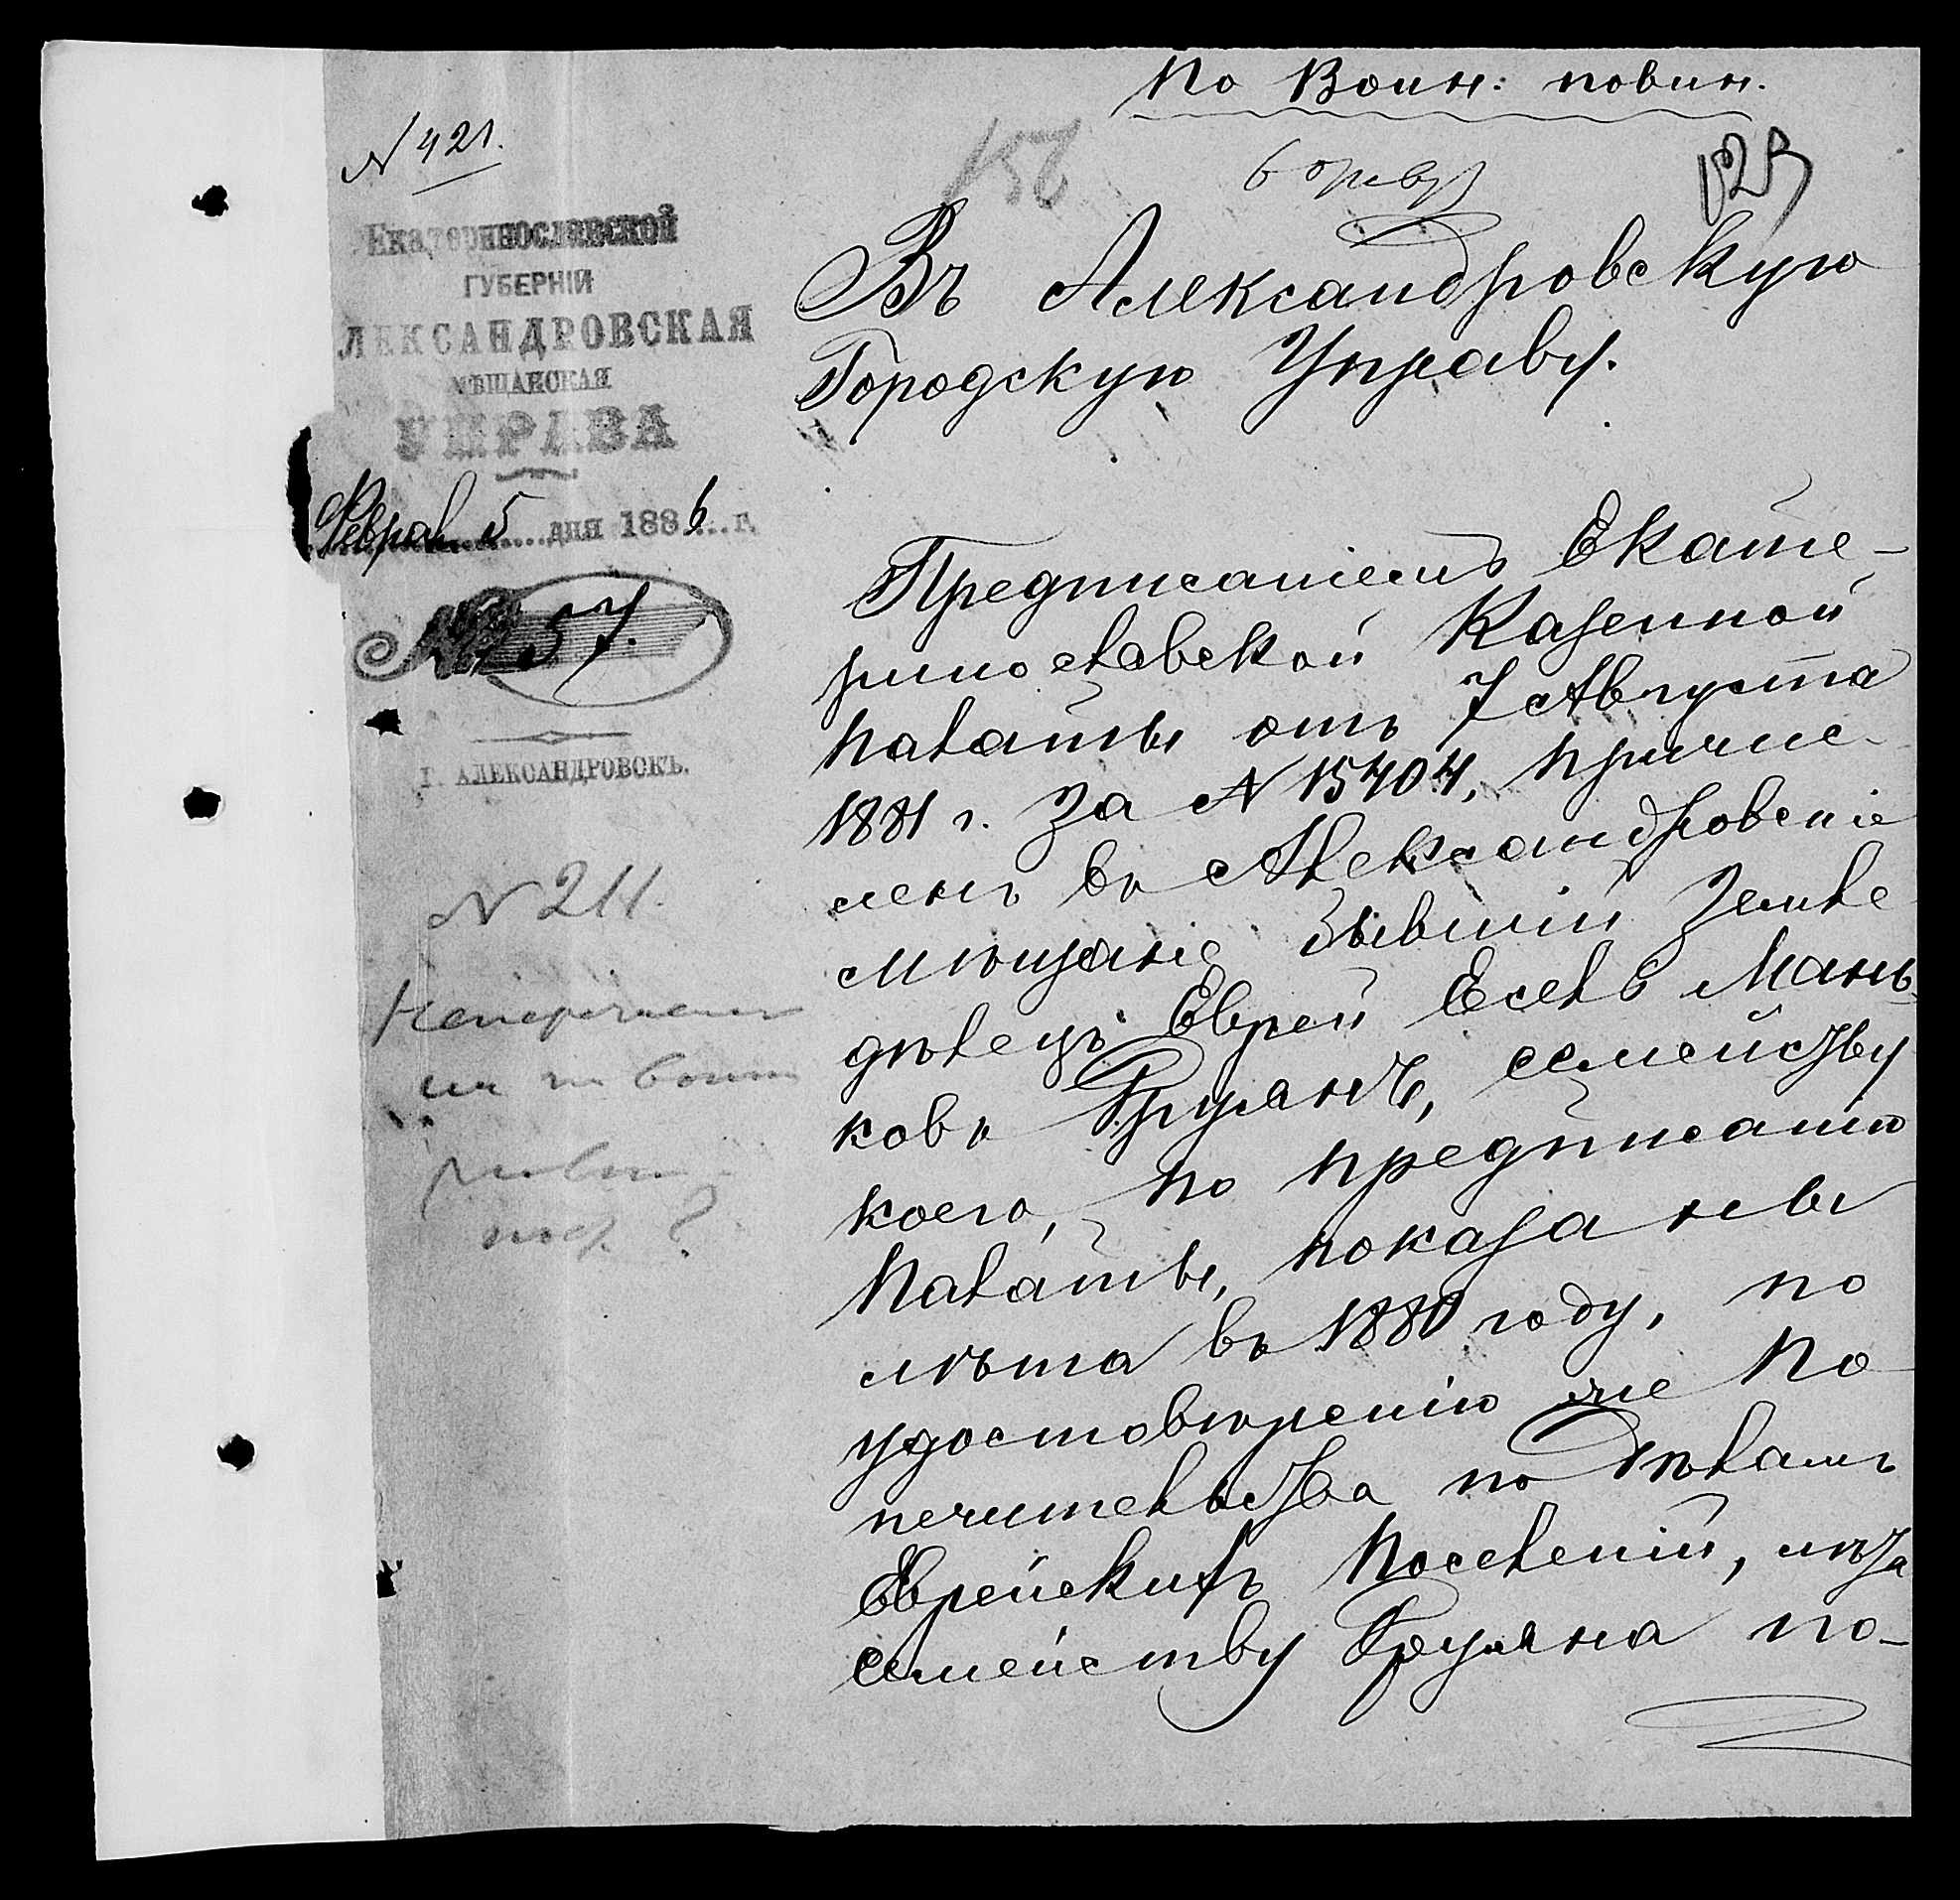 По Воин: повин.
N 421.
156
6 февр
Екатеринославской
ГУБЕРНІИ
ЛЕКСАНДРОВСКАЯ
МѢЩАНСКАЯ
УПРАВА
Феврал 5 дня 1886 г.
57.
г. АЛЕКСАНДРОВСКЪ.
N 211.
Въ Александровскую
Городскую Управу.
Предписаніемъ Екате-
ринославской Казенной
Палаты отъ 7 Августа
1881 г. за N 15404, причис-
ленъ въ Александровскіе
мѣщане бывшій Земле
дѣлецъ Еврей Есель Мань-
ковъ Фруманъ, семейству
коего, по предписанію
Палаты, показаны
лѣта въ 1880 году, по
удостовѣренію же По
печительства по Дѣламъ
Еврейскихъ Поселеній, лѣта
семейству Фрумана по-